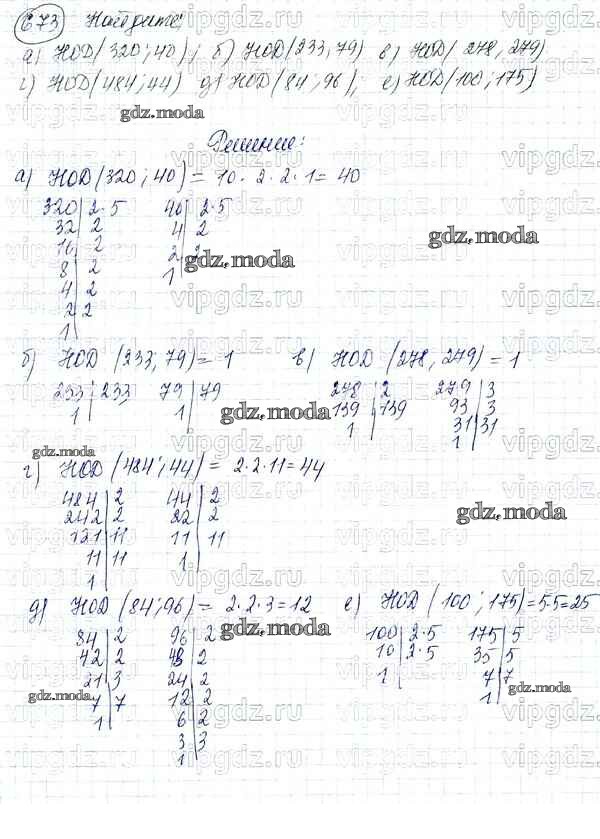 673 Найдите:
а) НОД(320; 40), б) НОД(233, 79) в) НОД(278, 279)
г) НОД(484; 44) д) НОД(84; 96), е) НОД(100; 175)
gdz.moda
Решение:
а) НОД(320; 40) = 10 · 2 · 2 · 1 = 40
320 | 2·5 40 | 2·5
32 | 2 4 | 2
16 | 2 2 | 2
8 | 2 1
4 | 2
2 | 2
1
gdz.moda
gdz.moda
б) НОД (233; 79) = 1 в) НОД (278, 279) = 1
233 | 233 79 | 79 278 | 2 279 | 3
1 1 139 | 139 93 | 3
1 31 | 31
1
gdz.moda
gdz.moda
г) НОД (484; 44) = 2·2·11 = 44
484 | 2 44 | 2
242 | 2 22 | 2
121 | 11 11 | 11
11 | 11 1
1
gdz.moda
д) НОД (84; 96) = 2·2·3 = 12 е) НОД (100; 175) = 5·5 = 25
84 | 2 96 | 2 100 | 2·5 175 | 5
42 | 2 48 | 2 10 | 2·5 35 | 5
21 | 3 24 | 2 1 7 | 7
7 | 7 12 | 2 1
1 6 | 2
3 | 3
1
gdz.moda
gdz.moda
gdz.moda
vipgdz.ru